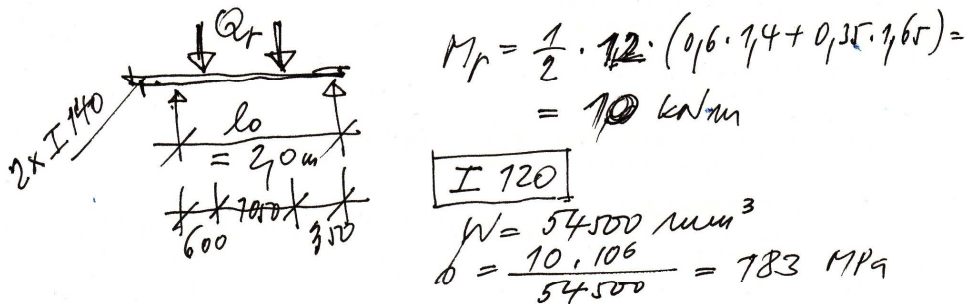 Qr
2 x I 140
l0
= 2,0 m
600 1050 350
Mr = 1/2 · 12 · (0,6 · 1,4 + 0,35 · 1,65) =
= 10 kNm
I 120
W = 54500 mm³
σ = 10 · 10⁶ / 54500 = 183 MPa